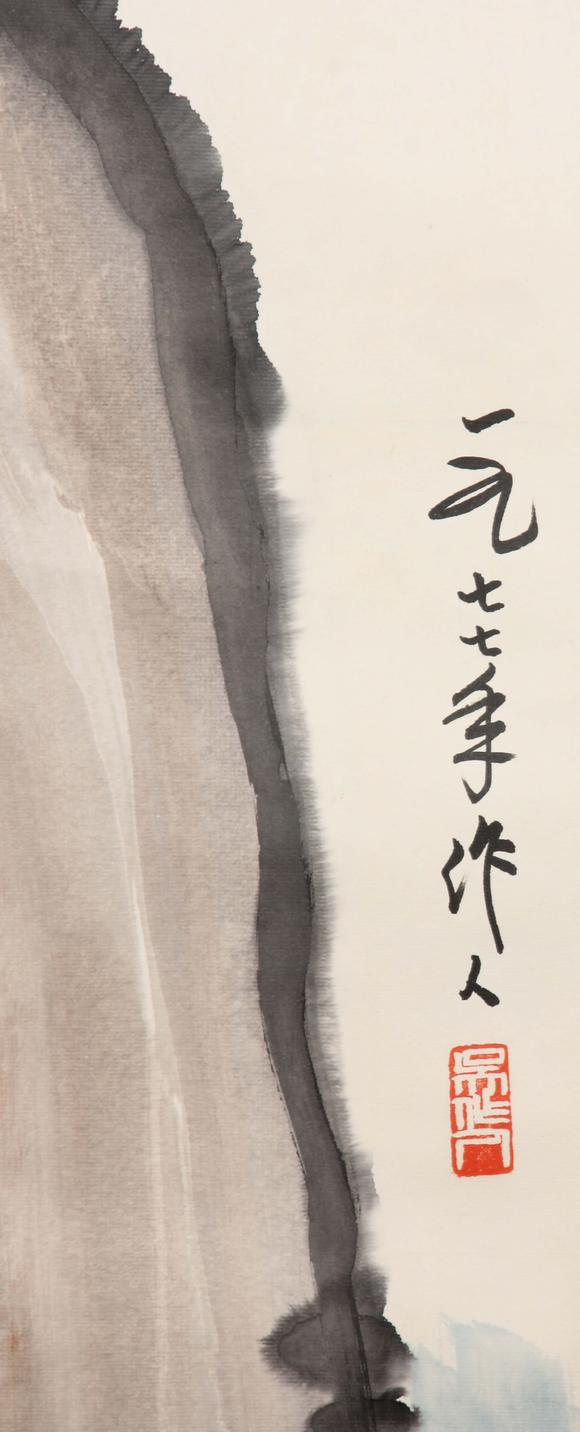 一九七七年作人
吴作人